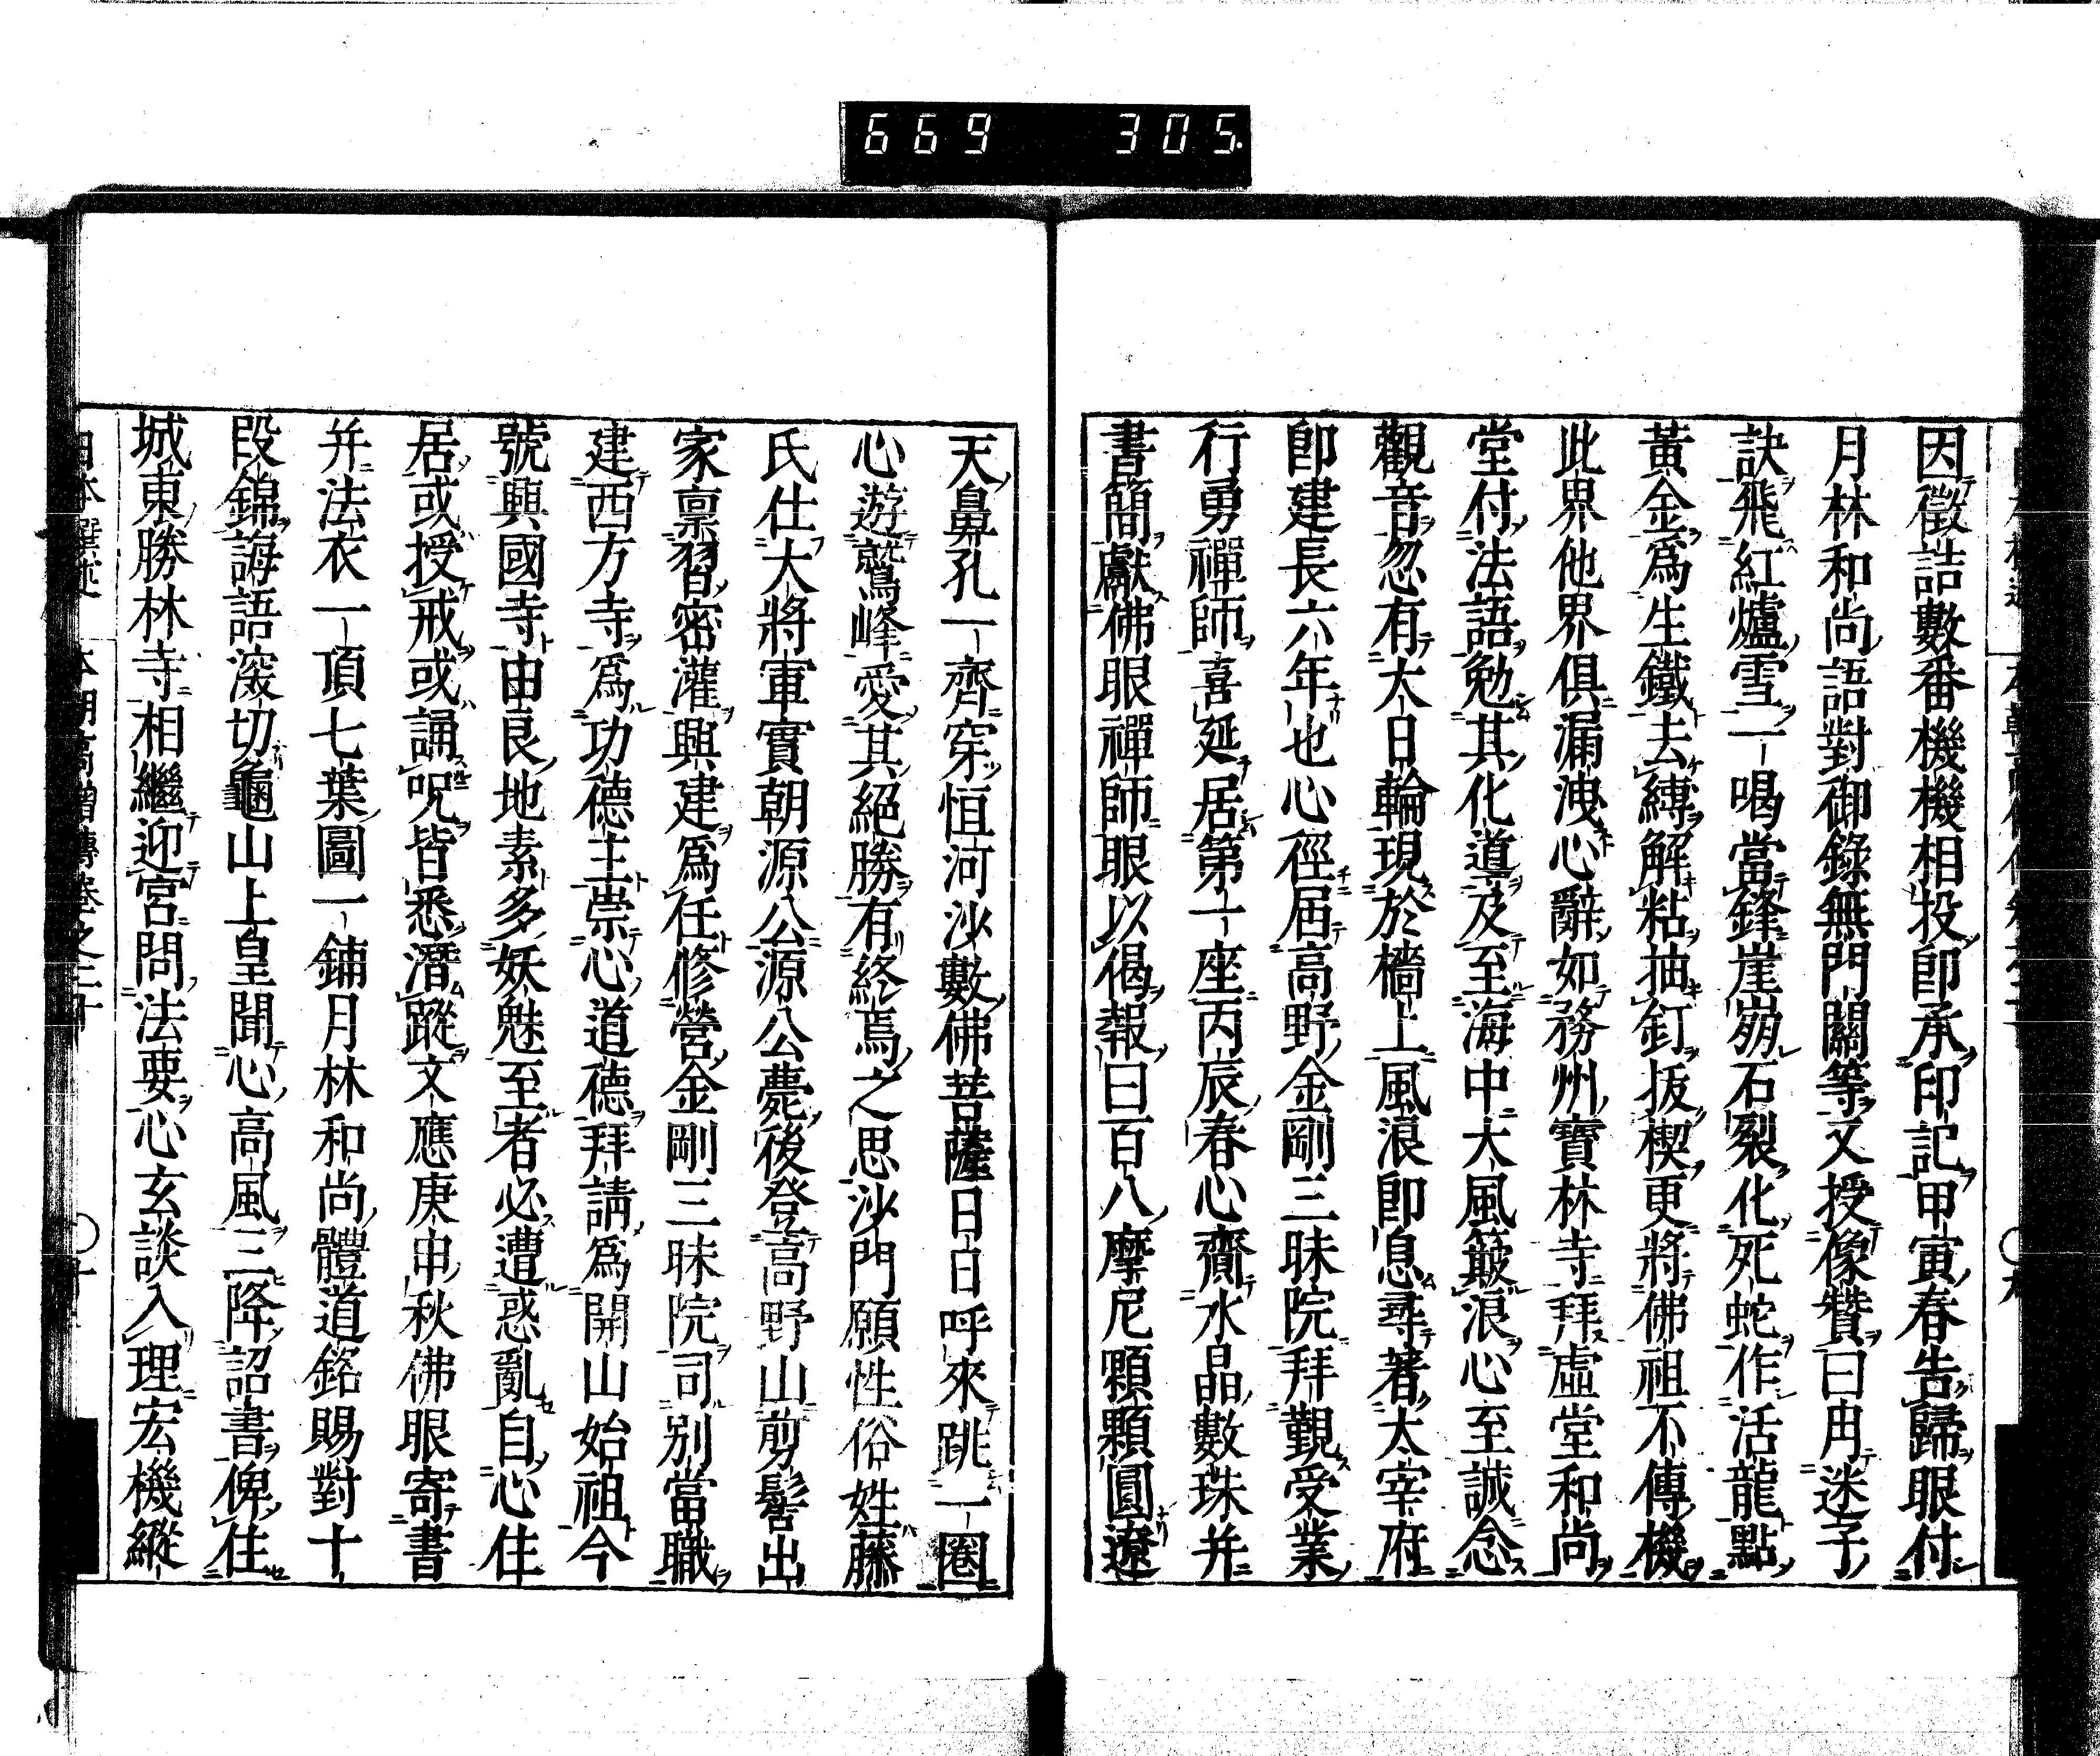 669 305
因徵詰數番機機相投卽承印記甲寅春告歸眼付
月林和尚語對御錄無門關等又授像贊曰冉迷子
訣飛紅爐雪一喝當鋒崖崩石裂化死蛇作活龍點
黃金爲生鐵去縛解粘抽釘拔楔更將佛祖不傳機
此界他界俱漏洩心辭如務州寶林寺拜虛堂和尚
堂付法語勉其化道及至海中大風簸浪心至誠念
觀音忽有大日輪現於檣上風浪卽息尋著太宰府
卽建長六年也心徑屆高野金剛三昧院拜觀受業
行勇禪師喜延居第一座丙辰春心齎水晶數珠并
書簡獻佛眼禪師眼以偈報曰百八摩尼顆顆圓遼
天鼻孔一齊穿恒河沙數佛菩薩日日呼來跳一圈
心遊鷲峰愛其絕勝有終焉之思沙門願性俗姓藤
氏仕大將軍實朝源公源公薨後登高野山剪髻出
家禀習密灌興建爲任修營金剛三昧院司別當職
建西方寺爲功德主崇心道德拜請爲開山始祖今
號興國寺由良地素多妖魅至者必遭惑亂自心住
居或授戒或誦呪皆悉潛蹤文應庚申秋佛眼寄書
并法衣一頂七葉圖一鋪月林和尚體道銘賜對十
段錦誨語深切龜山上皇聞心高風三降詔書俾住
城東勝林寺相繼迎宮問法要心玄談入理宏機縱
日本撰述 本朝高僧傳卷之二十